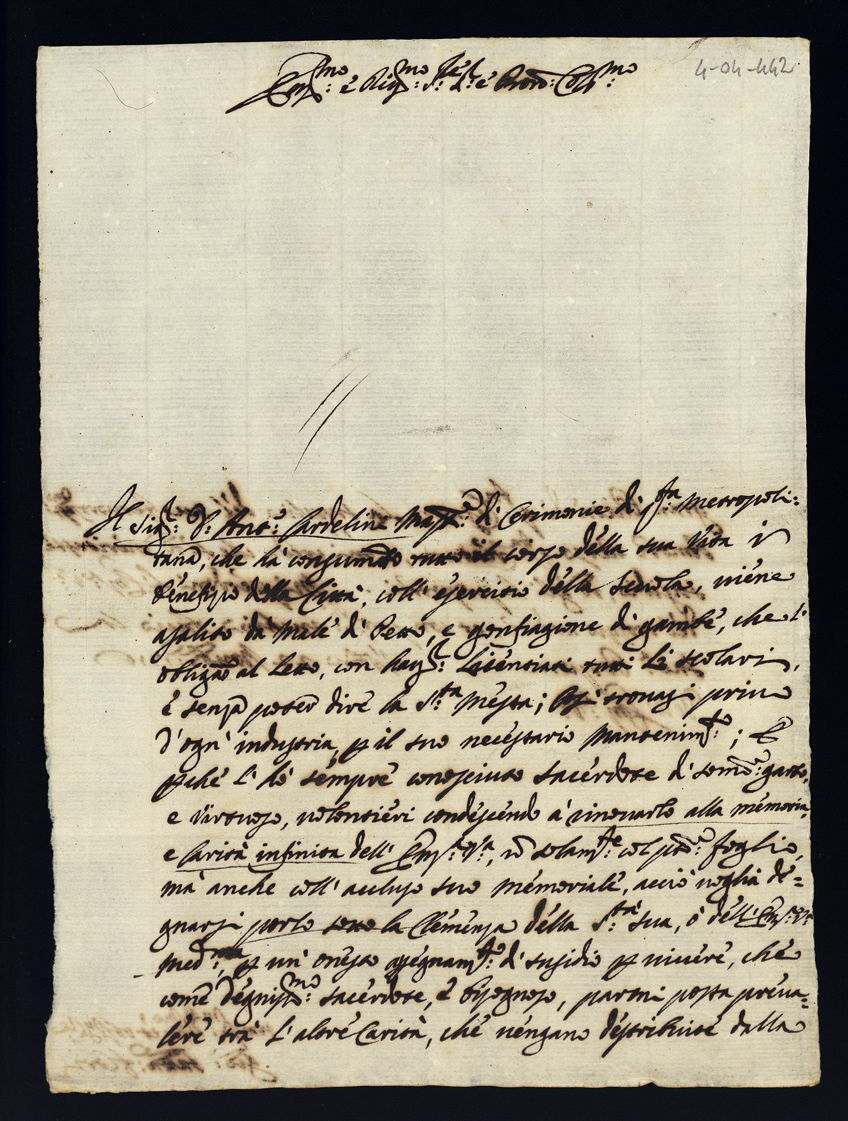 4-04-442.
Em:mo e Rev:mo Sig:re S:r e Pron: Col:mo
Il Sig:r D: Ant:o Cardeline Mast:o di Cerimonie di q:ta Metropoli:
tana, che hà consumato tutto il corso della sua vita in
benefizio della Città, coll'esercitio della scuola, viene
assalito dà male di Petto, e gonfiagione di gambe, che l'
obligano al Letto, con haver Licentiati tutti Li scolari,
è senza poter dire la S:ta Messa; Così trovasi privo
d'ogn'industria, p il suo necessario Mantenim:to; E
pche l'hò sempre conosciuto sacerdote di som:o garbo,
e virtuoso, volontieri condescendo à rinovarlo alla memoria,
e Carità infinita dell'Em:a V:a, nò solam:te col pnte foglio,
mà anche coll'accluso suo memoriale, acciò voglia de=
gnarsi porlo sotto la Clemenza della S:tà sua, ò dell'Em:a V:a
med:ma, p un'onesto assegnam:to di susidio p vivere, chè
come degniss:mo sacerdote, è bisognoso, parmi possa preva=
lere trà l'altre Carità, che vengano destribuite dalla